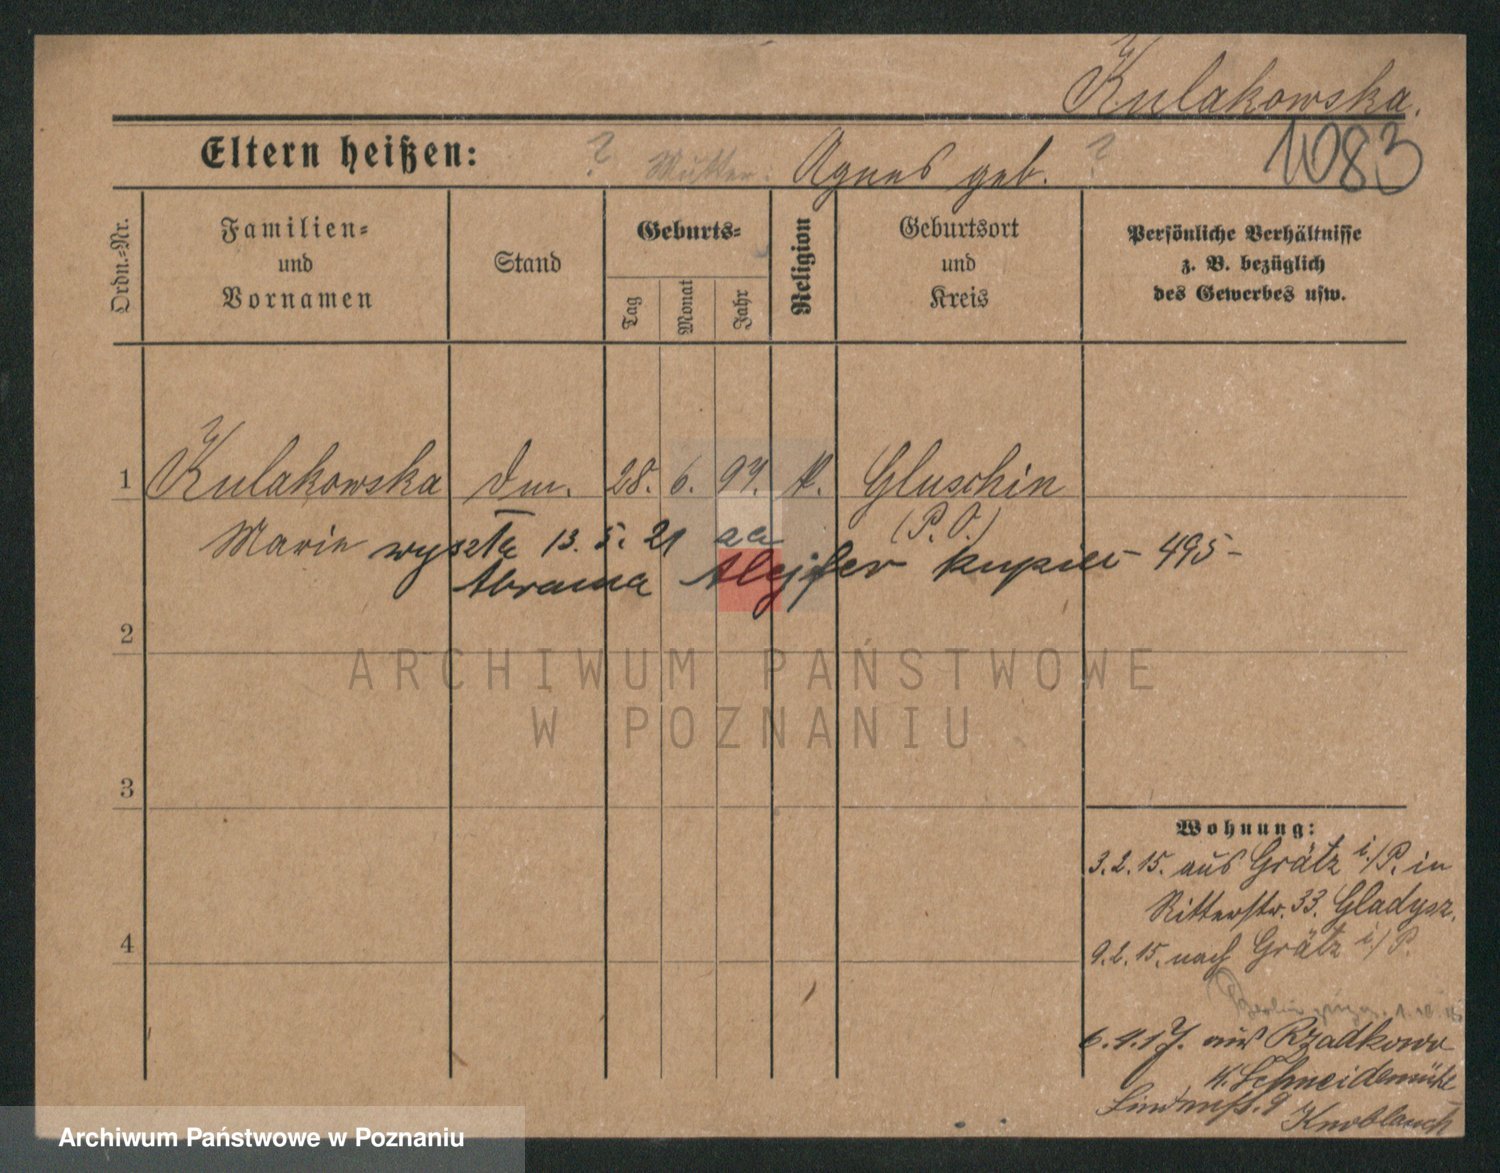 Kulakowska.
1083
Eltern heißen: ? Mutter: Agnes geb. ?
Ordn.-Nr.
Familien-
und
Vornamen
Stand
Geburts-
Tag
Monat
Jahr
Religion
Geburtsort
und
Kreis
Persönliche Verhältnisse
z. B. bezüglich
des Gewerbes usw.
1 Kulakowska 28. 6. 97. K. Gluschin
(P. O.)
Marie wyszła 13. 5. 21 za
Abrama kupiec 495
2
ARCHIWUM PAŃSTWOWE
W POZNANIU
3
4
Wohnung:
3. 2. 15. aus Grätz i/P. in
Ritterstr. 33. Gladysz.
9. 2. 15. nach Grätz i/P.
Berlin
6. 4. 17. aus Rzadkowo
K. Schneidemühl
9 Knoblauch
Archiwum Państwowe w Poznaniu